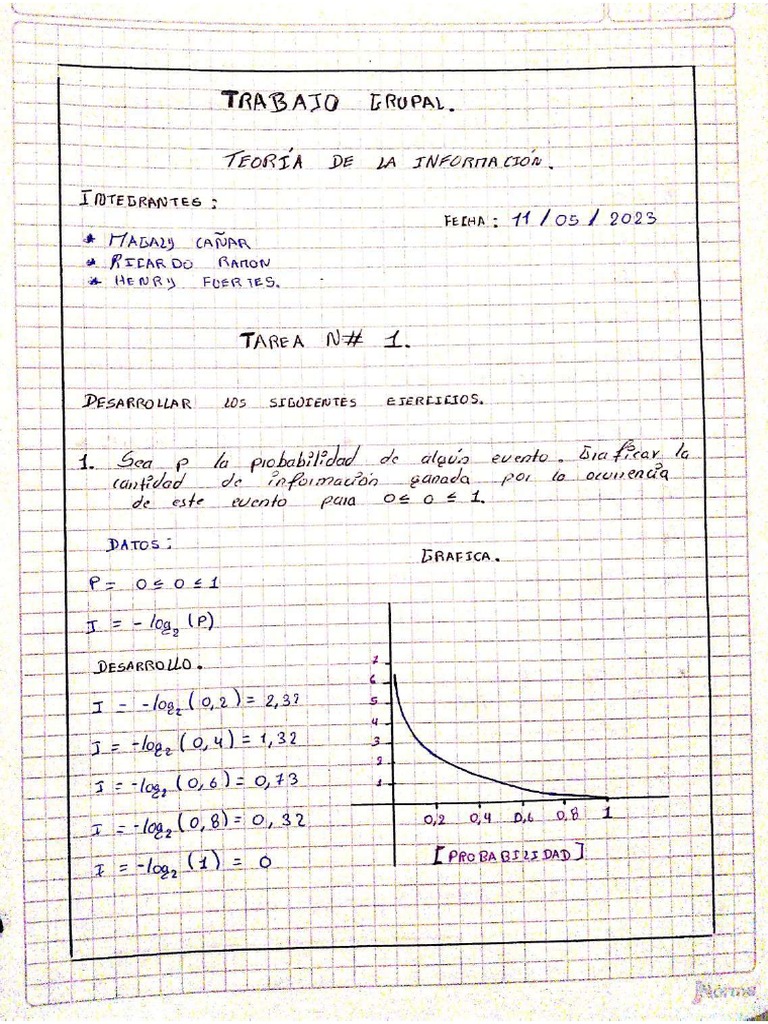 TRABAJO GRUPAL.
TEORÍA DE LA INFORMACIÓN.
INTEGRANTES:
FECHA: 11/05/2023
* MAGALY CAÑAR
* RICARDO RAMON
* HENRY FUERTES.
TAREA N# 1.
DESARROLLAR LOS SIGUIENTES EJERCICIOS.
1. Sea p la probabilidad de algún evento. Graficar la
cantidad de información ganada por la ocurrencia
de este evento para 0 ≤ 0 ≤ 1.
DATOS:
GRAFICA.
P = 0 ≤ 0 ≤ 1
I = - log₂ (P)
DESARROLLO.
I = -log₂ (0,2) = 2,32
I = -log₂ (0,4) = 1,32
I = -log₂ (0,6) = 0,73
I = -log₂ (0,8) = 0,32
I = -log₂ (1) = 0
7
6
5
4
3
2
1
0,2 0,4 0,6 0,8 1
[PROBABILIDAD]
Norma